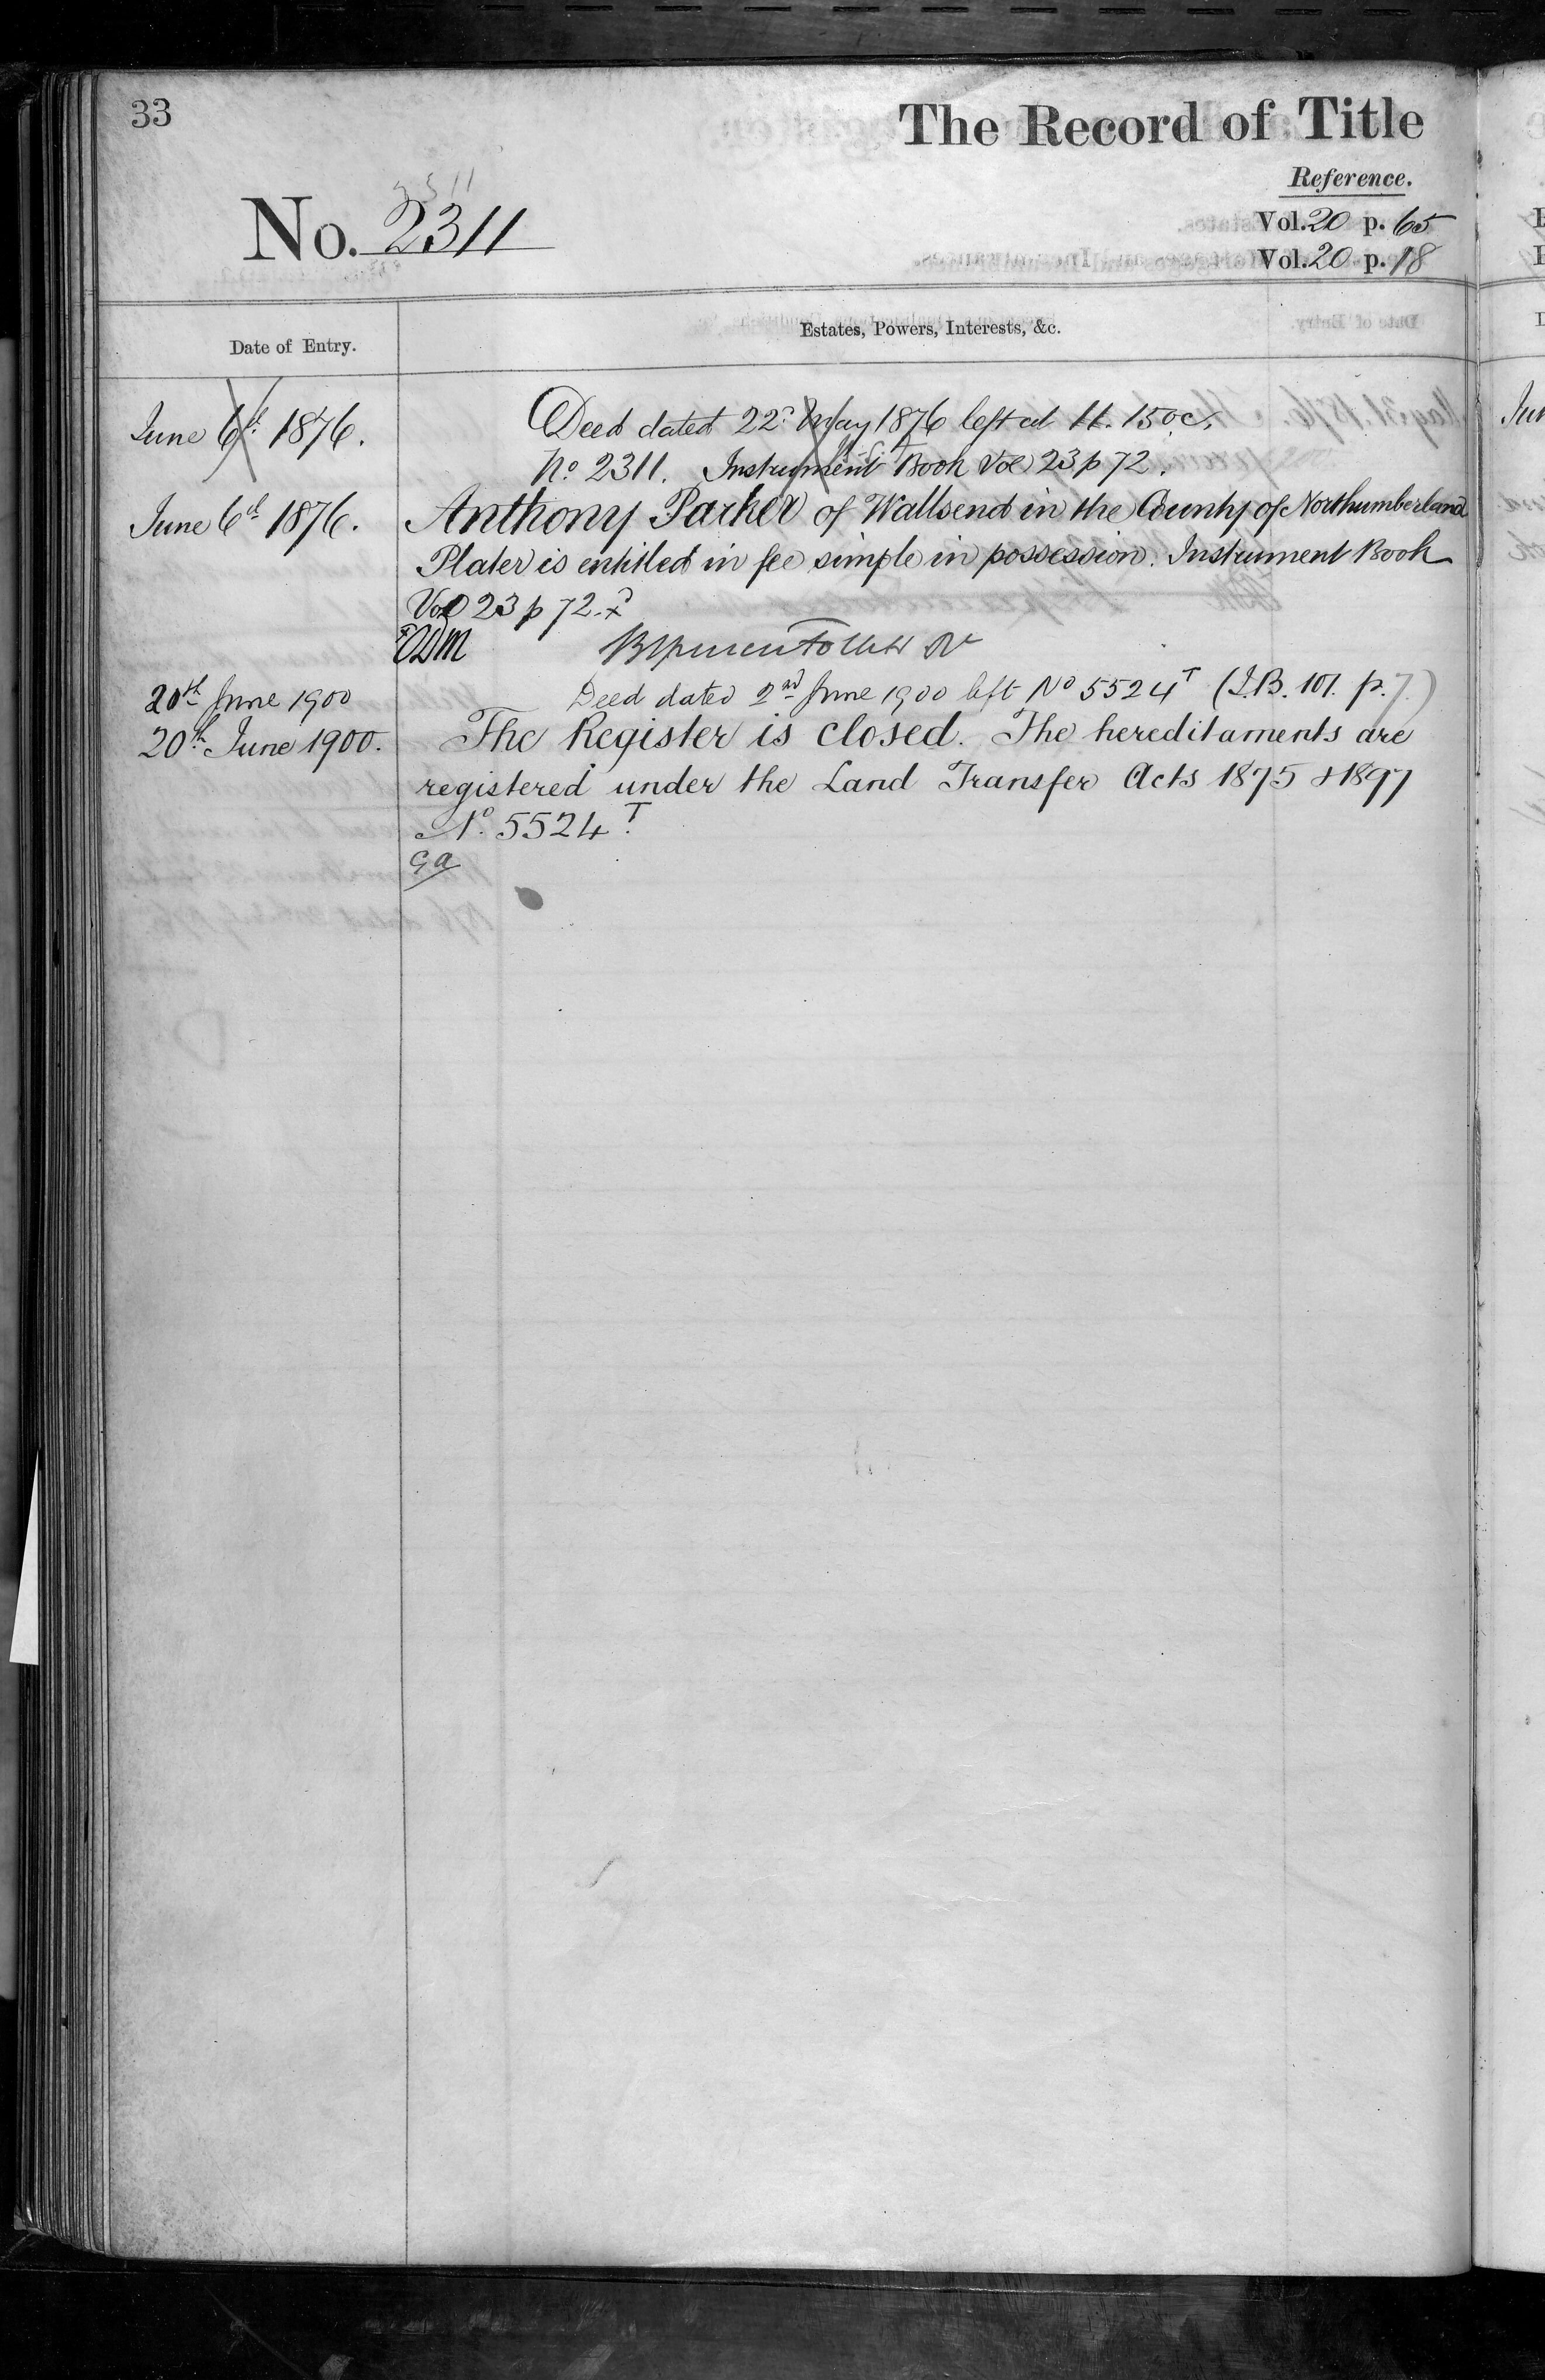 33
The Record of Title
Reference.
2311
No. 2311
Vol. 20 p. 65
Vol. 20 p. 18
Date of Entry.
Estates, Powers, Interests, &c.
June 6th 1876. Deed dated 22d May 1876 left at 11.15 oc.
No 2311. Instrument Book Vol 23 p 72.
June 6th 1876. Anthony Parker of Wallsend in the County of Northumberland
Plater is entitled in fee simple in possession. Instrument Book
Vol 23 p 72.
20th June 1900 Deed dated 2nd June 1900 left No 5524T (I.B. 101. p. 7.)
20th June 1900. The Register is closed. The hereditaments are
registered under the Land Transfer Acts 1875 & 1897
No. 5524T.